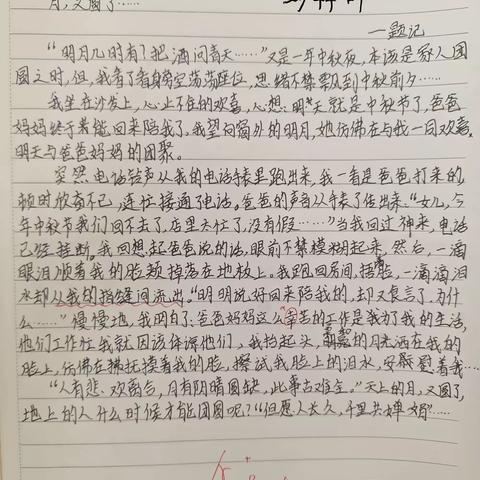 月，又圆了……
—题记
“明月几时有？把酒问青天……”又是一年中秋夜，本该是家人团
圆之时，但，我看了看身旁空荡荡座位，思绪不禁飘到中秋前夕……
我坐在沙发上，心止不住的欢喜，心想：明天就是中秋节了，爸爸
妈妈终于能回来陪我了，我望向窗外的明月，她仿佛在与我一同欢喜
明天与爸爸妈妈的团聚。
突然电话铃声从我的电话手表里跑出来，我一看是爸爸打来的，
顿时欣喜不已，连忙接通了电话，爸爸的声音从手表了传出来。“女儿，今
年中秋节我们回不去了，店里太忙了，没有假……”当我回过神来，电话
已经挂断，我回想起爸爸说的话，眼前不禁模糊起来，然后，一滴
眼泪顺着我的脸颊掉落在地板上。我跑回房间，捂着脸，一滴滴泪
水却从我的指缝间流出。“明明说好回来陪我的，却又食言了，为什
么……”慢慢地，我明白了：爸爸妈妈这么辛苦的工作是为了我的生活，
他们工作忙我就因该体谅他们，我抬起头，柔和的月光洒在我的
脸上，仿佛在抚摸着我的脸，擦试我脸上的泪水，安慰着我……
“人有悲欢离合，月有阴晴圆缺，此事古难全。”天上的月，又圆了，
地上的人什么时候才能团圆呢？“但愿人长久，千里共婵娟”……